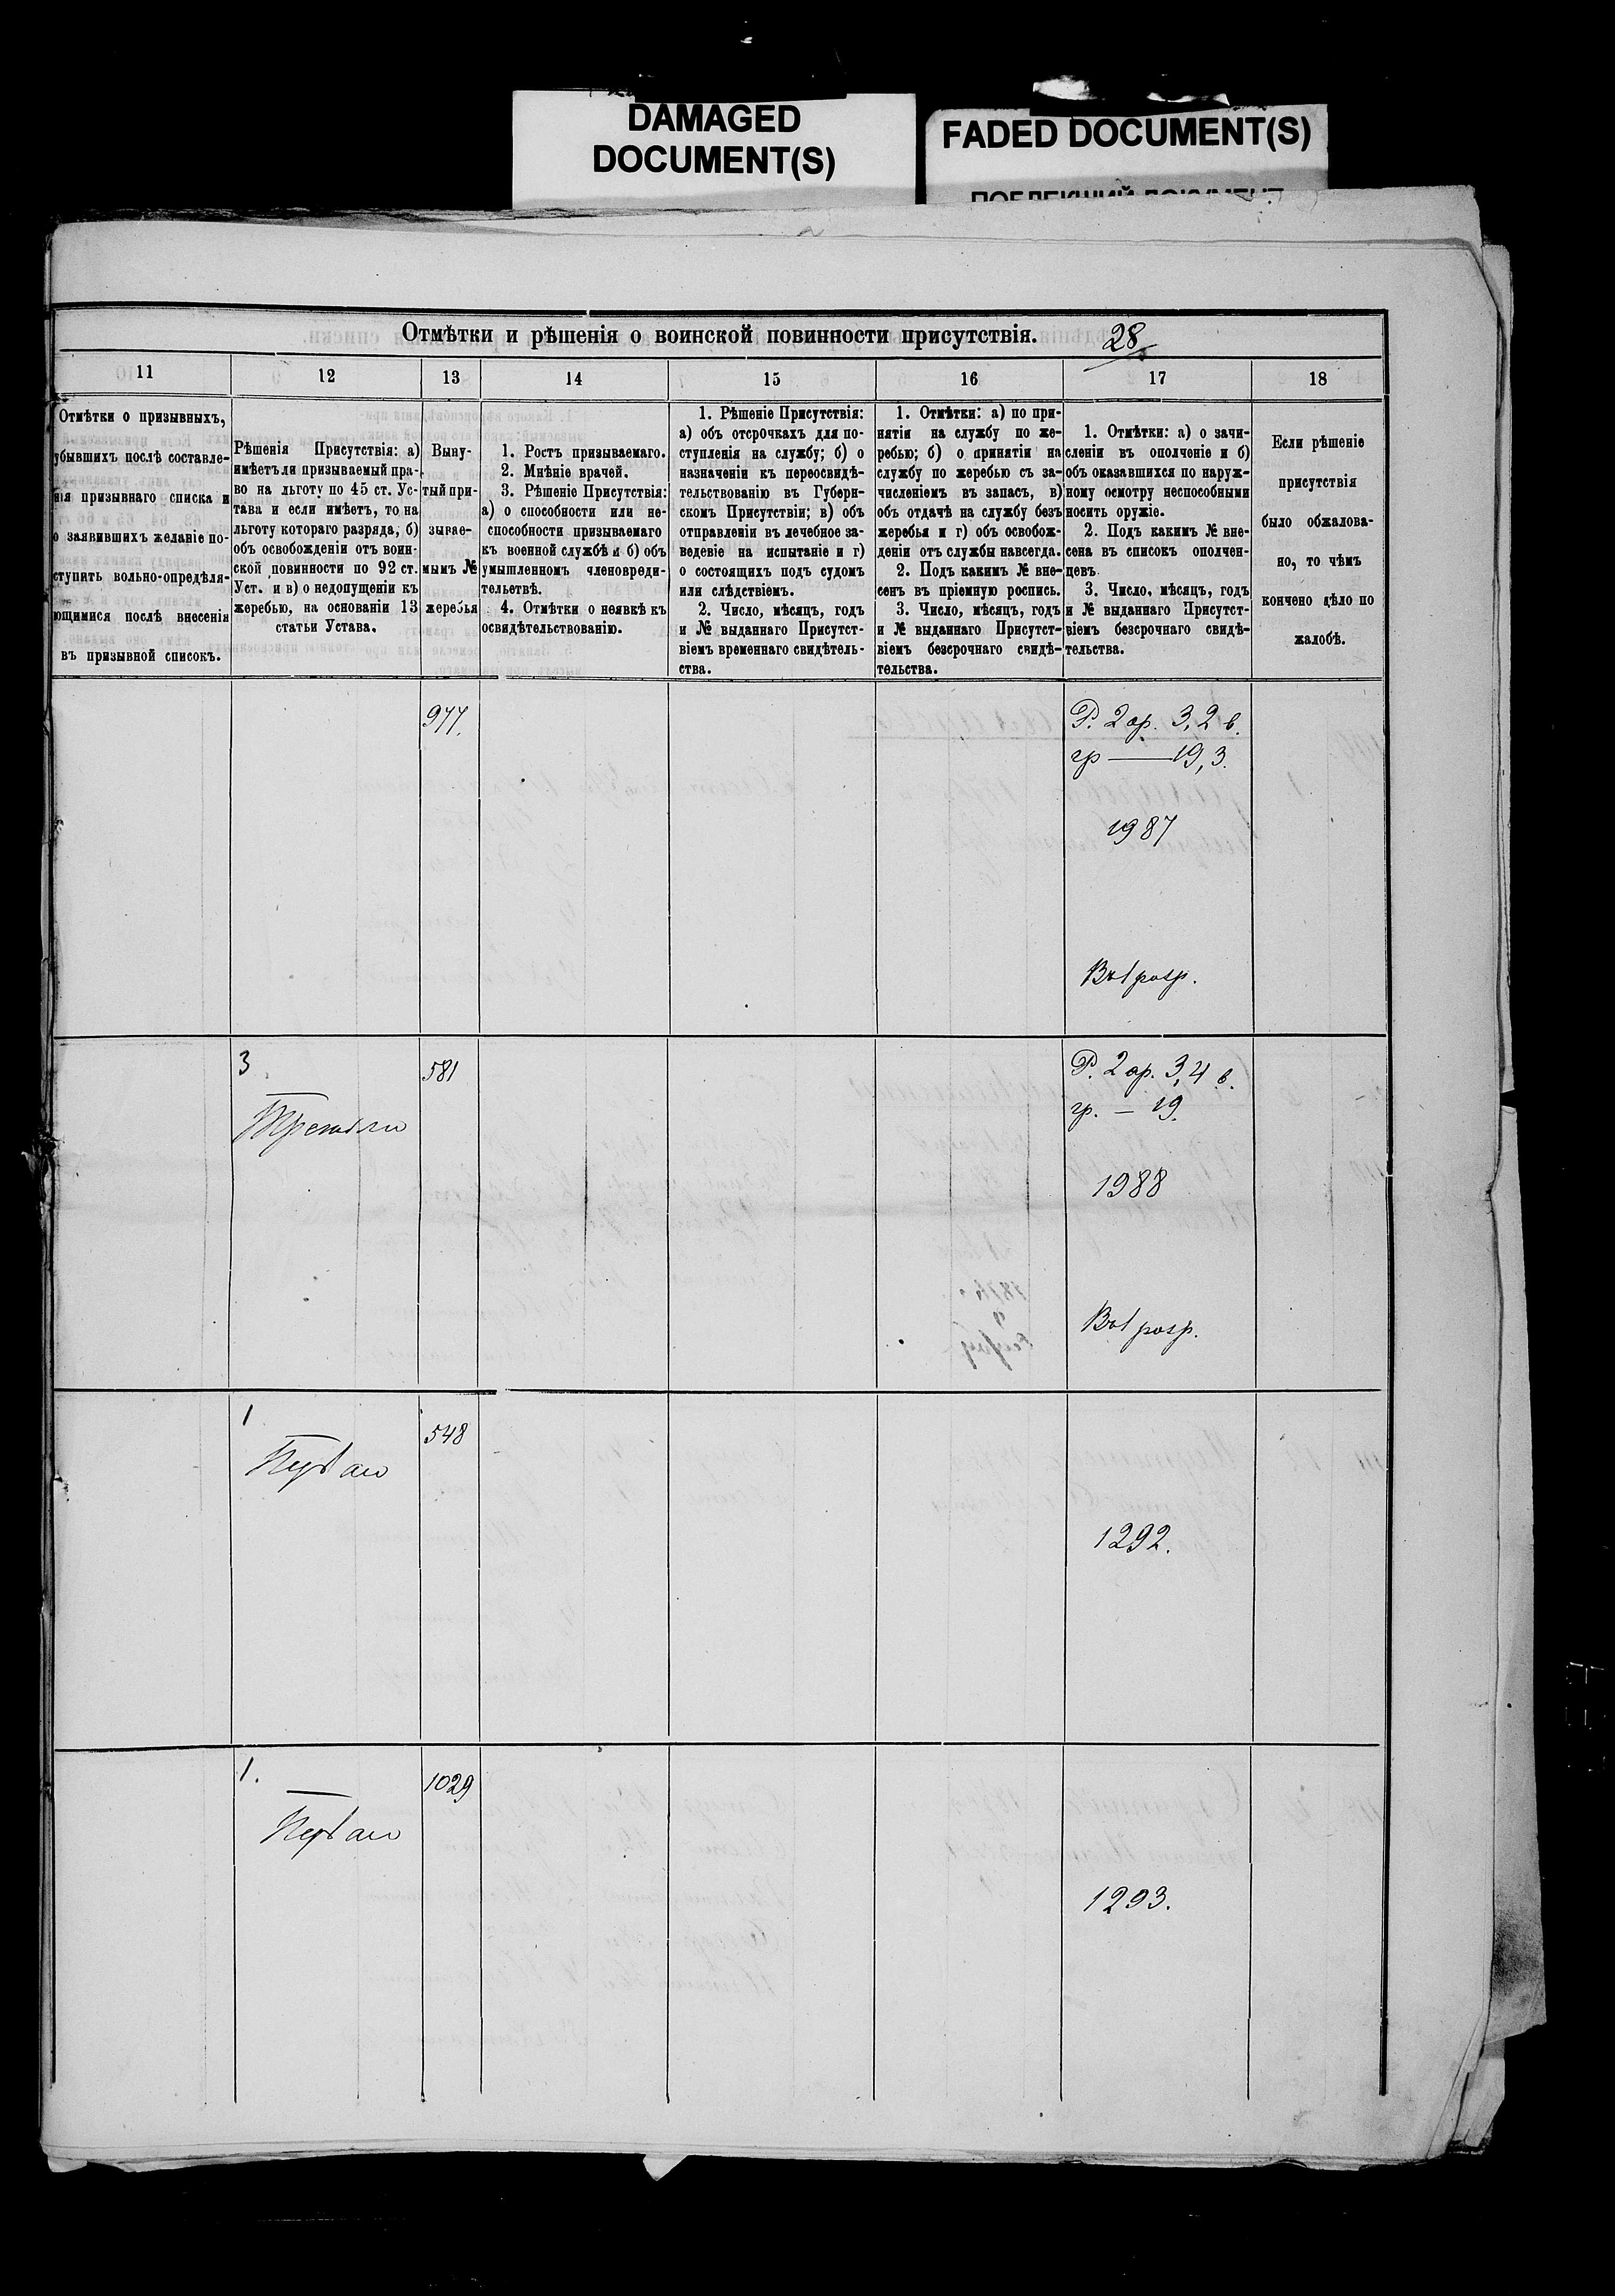 DAMAGED
DOCUMENT(S)
FADED DOCUMENT(S)
Отмѣтки и рѣшенія о воинской повинности присутствія.
28
11
12
13
14
15
16
17
18
Отмѣтки о призывныхъ,
убывшихъ послѣ составле-
нія призывнаго списка и
о заявившихъ желаніе по-
ступить вольно-опредѣля-
ющимися послѣ внесенія
въ призывной списокъ.
Рѣшенія Присутствія: а)
имѣетъ ли призываемый пра-
во на льготу по 45 ст. Ус-
тава и если имѣетъ, то на
льготу котораго разряда, б)
объ освобожденіи отъ воин-
ской повинности по 92 ст.
Уст. и в) о недопущеніи къ
жеребью, на основаніи 13
статьи Устава.
Выну-
тый при-
зывае-
мымъ №
жеребья
1. Ростъ призываемаго.
2. Мнѣніе врачей.
3. Рѣшеніе Присутствія:
а) о способности или не-
способности призываемаго
къ военной службѣ и б) объ
умышленномъ членовреди-
тельствѣ.
4. Отмѣтки о неявкѣ къ
освидѣтельствованію.
1. Рѣшеніе Присутствія:
а) объ отсрочкахъ для по-
ступленія на службу; б) о
назначеніи къ переосвидѣ-
тельствованію въ Губерн-
скомъ Присутствіи; в) объ
отправленіи въ лечебное за-
веденіе на испытаніе и г)
о состоящихъ подъ судомъ
или слѣдствіемъ.
2. Число, мѣсяцъ, годъ
и № выданнаго Присутст-
віемъ временнаго свидѣтель-
ства.
1. Отмѣтки: а) по при-
нятіи на службу по же-
ребью; б) о принятіи на
службу по жеребью съ за-
численіемъ въ запасъ, в)
объ отдачѣ на службу безъ
жеребья и г) объ освобож-
деніи отъ службы навсегда.
2. Подъ какимъ № вне-
сенъ въ пріемную роспись.
3. Число, мѣсяцъ, годъ
и № выданнаго Присутст-
віемъ безсрочнаго свидѣ-
тельства.
1. Отмѣтки: а) о зачи-
сленіи въ ополченіе и б)
объ оказавшихся по наруж-
ному осмотру неспособными
носить оружіе.
2. Подъ какимъ № вне-
сена въ списокъ ополчен-
цевъ.
3. Число, мѣсяцъ, годъ
и № выданнаго Присутст-
віемъ безсрочнаго свидѣ-
тельства.
Если рѣшеніе
присутствія
было обжалова-
но, то чѣмъ
кончено дѣло по
жалобѣ.
977.
Р. 2 ар. 3,2 в.
гр — 19,3.
1987
Въ 1 разр.
3
581
Третьяго
Р. 2 ар. 3,4 в.
гр. — 19.
1988
Въ 1 разр.
1
548
1292.
1.
1029
1293.